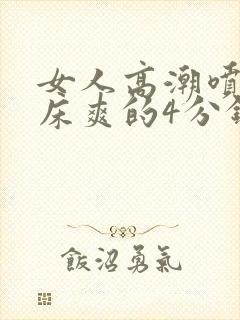 女人高潮喷
床爽的4分钟
飯沼勇氣